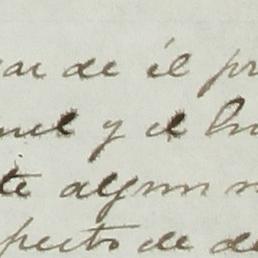 ar de él pr
nel y el hu
te algun
specto de de